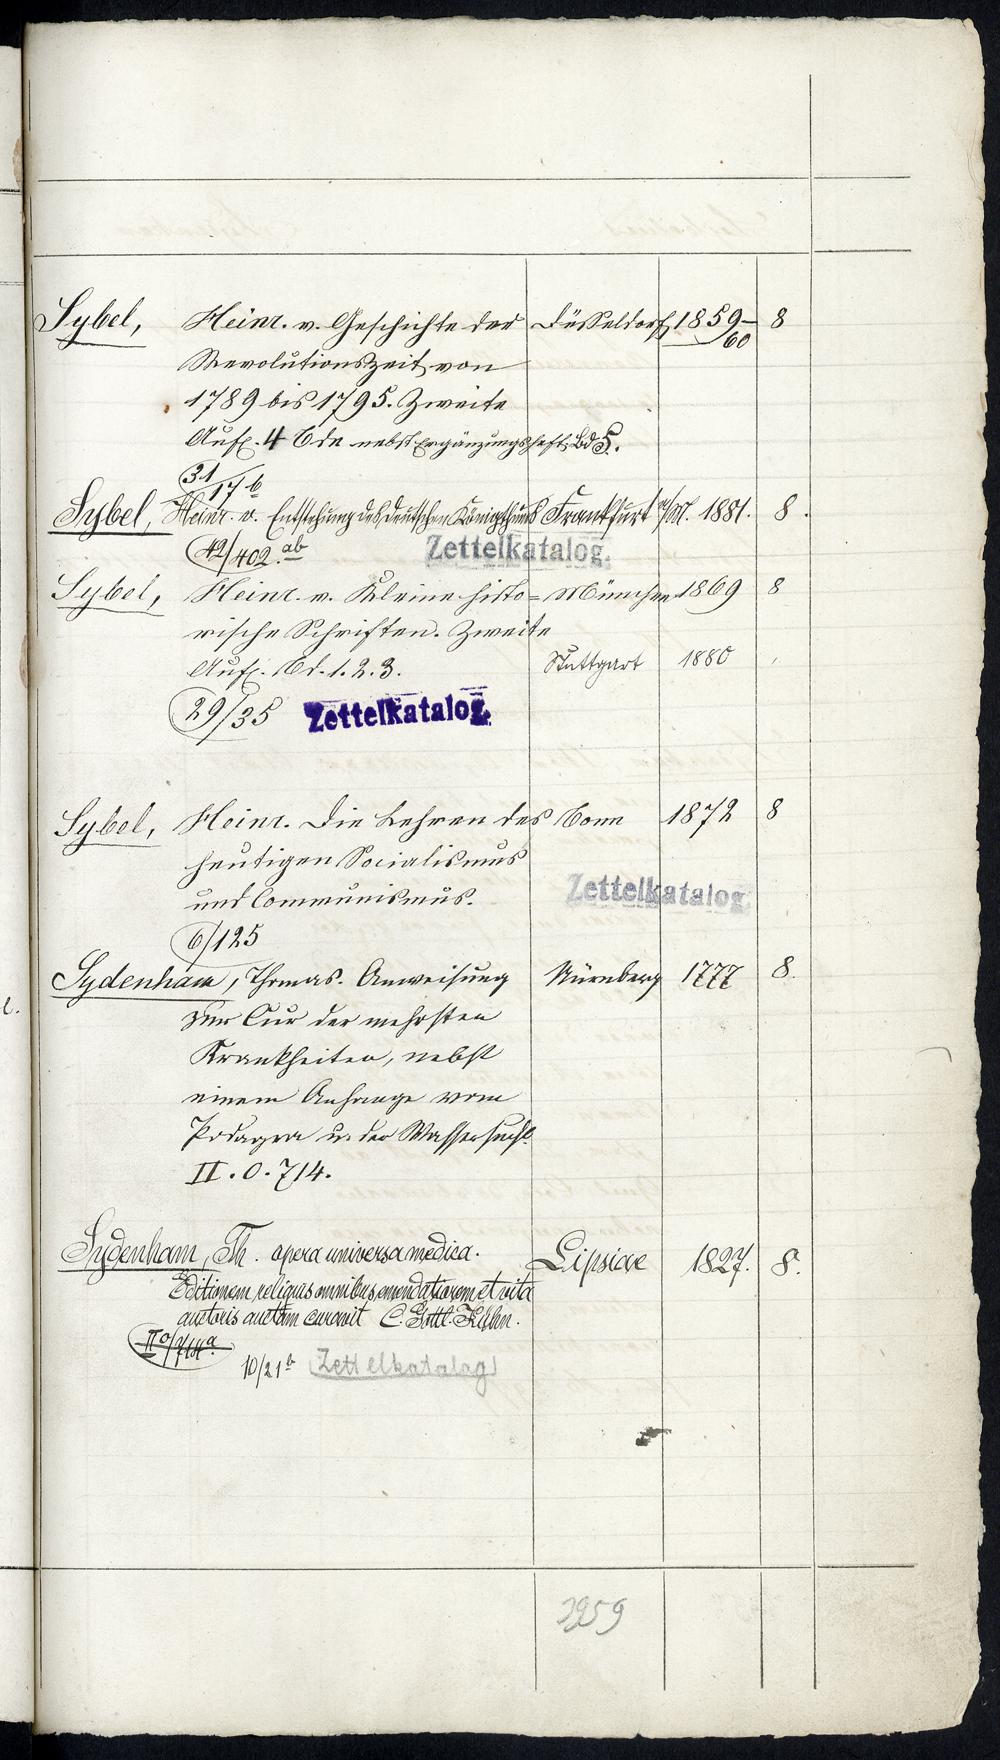 Sybel, Heinr. v. Geschichte der Düsseldorf, 1859– 8
Revolutionszeit von 60
1789 bis 1795. Zweite
Aufl. 4 Bde nebst Ergänzungsheft, Bd 5.
31/17 b
Sybel, Heinr. v. Entstehung des deutschen Königthums Frankfurt a/M. 1881. 8.
42/402. ab Zettelkatalog.
Sybel, Heinr. v. Kleine histo= München 1869 8
rische Schriften. Zweite
Aufl. Bd. 1. 2. 3. Stuttgart 1880 ,
29/35 Zettelkatalog.
Sybel, Heinr. Die Lehren des Bonn 1872 8
heutigen Socialismus
und Communismus. Zettelkatalog.
6/125
Sydenham, Thomas. Anweisung Nürnberg 1777 8.
zur Cur der mehrsten
Krankheiten, nebst
einem Anhange vom
Podagra u. der Wassersucht.
II. o. 714.
Sydenham, Th. opera universa medica. Lipsiae 1827. 8.
Editionem reliquis omnibus emendatiorem et vita
auctoris auctam curavit C. Gottl. Kühn.
II o/714a.
10/21 b Zettelkatalog